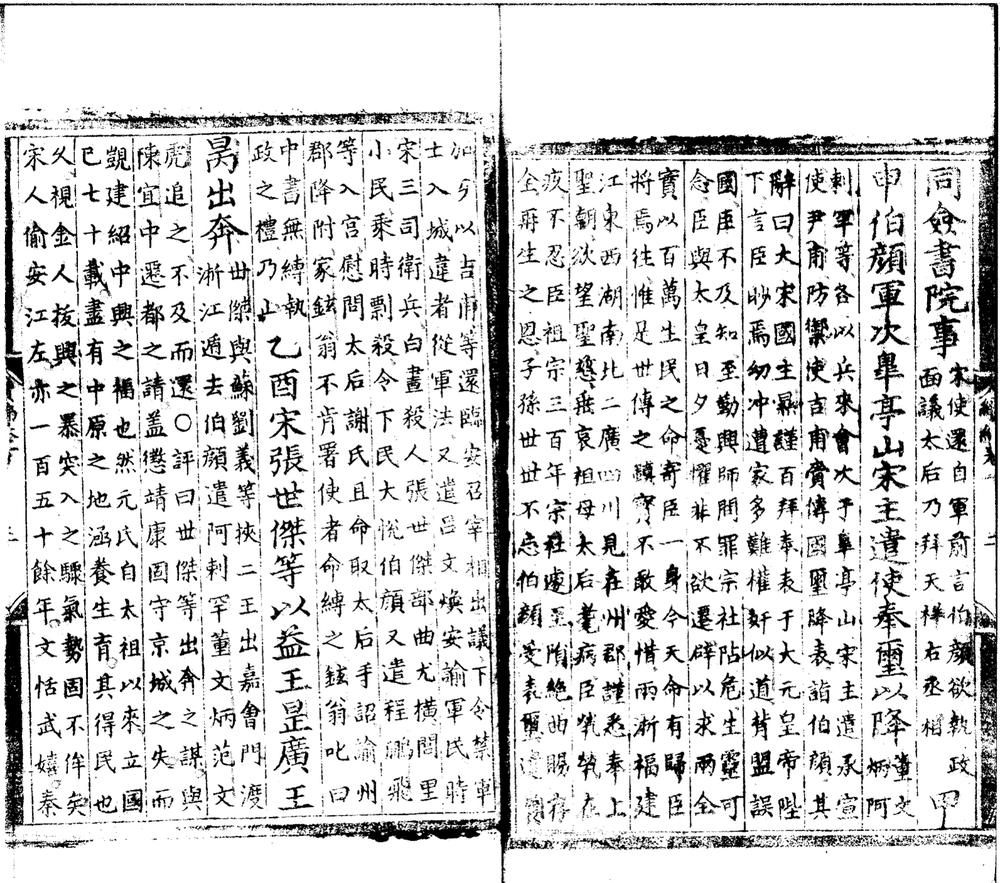 同僉書院事
宋使還自軍前言伯顏欲執政
面議太后乃拜天祥右丞相
甲
申伯顏軍次皐亭山宋主遣使奉璽以降
董文
炳阿
刺罕等各以兵來會次于皐亭山宋主遣承宣
使尹甫防禦使吉甫賚傳國璽降表詣伯顏其
辭曰大宋國主㬎謹百拜奉表于大元皇帝陛
下言臣眇焉幼冲遭家多難權奸似道背盟誤
國臣不及知至勤興師問罪宗社阽危生靈可
念臣與太皇日夕憂懼非不欲遷辟以求兩全
實以百萬生民之命寄臣一身今天命有歸臣
將焉往惟是世傳之鎮寶不敢愛惜兩浙福建
江東西湖南北二廣四川見在州郡謹悉奉上
聖朝欲望聖慈垂哀祖母太后耄病臣煢煢在
疚不忍臣祖宗三百年宗社遽至隕絶曲賜存
全再生之恩子孫世世不忘伯顏受表璽遣囊
加歹以吉甫等還臨安召宰相出議下令禁軍
士入城違者從軍法又遣吕文煥安諭軍民時
宋三司衛兵白晝殺人張世傑部曲尤橫閭里
小民乘時剽殺令下民大悅伯顏又遣程鵬飛
等入宮慰問太后謝氏且命取太后手詔諭州
郡降附家鉉翁不肯署使者命縛之鉉翁叱曰
中書無縛執
政之禮乃止
乙酉宋張世傑等以益王昰廣王
昺出奔
世傑與蘇劉義等挾二王出嘉會門渡
浙江遁去伯顏遣阿剌罕董文炳范文
虎追之不及而還○評曰世傑等出奔之謀與
陳宜中遷都之請盖懲靖康固守京城之失而
覬建紹中興之福也然元氏自太祖以來立國
巳七十載盡有中原之地涵養生育其得民也
乆視金人拔興之暴突入之驟氣勢固不侔矣
宋人偷安江左亦一百五十餘年文恬武嬉秦